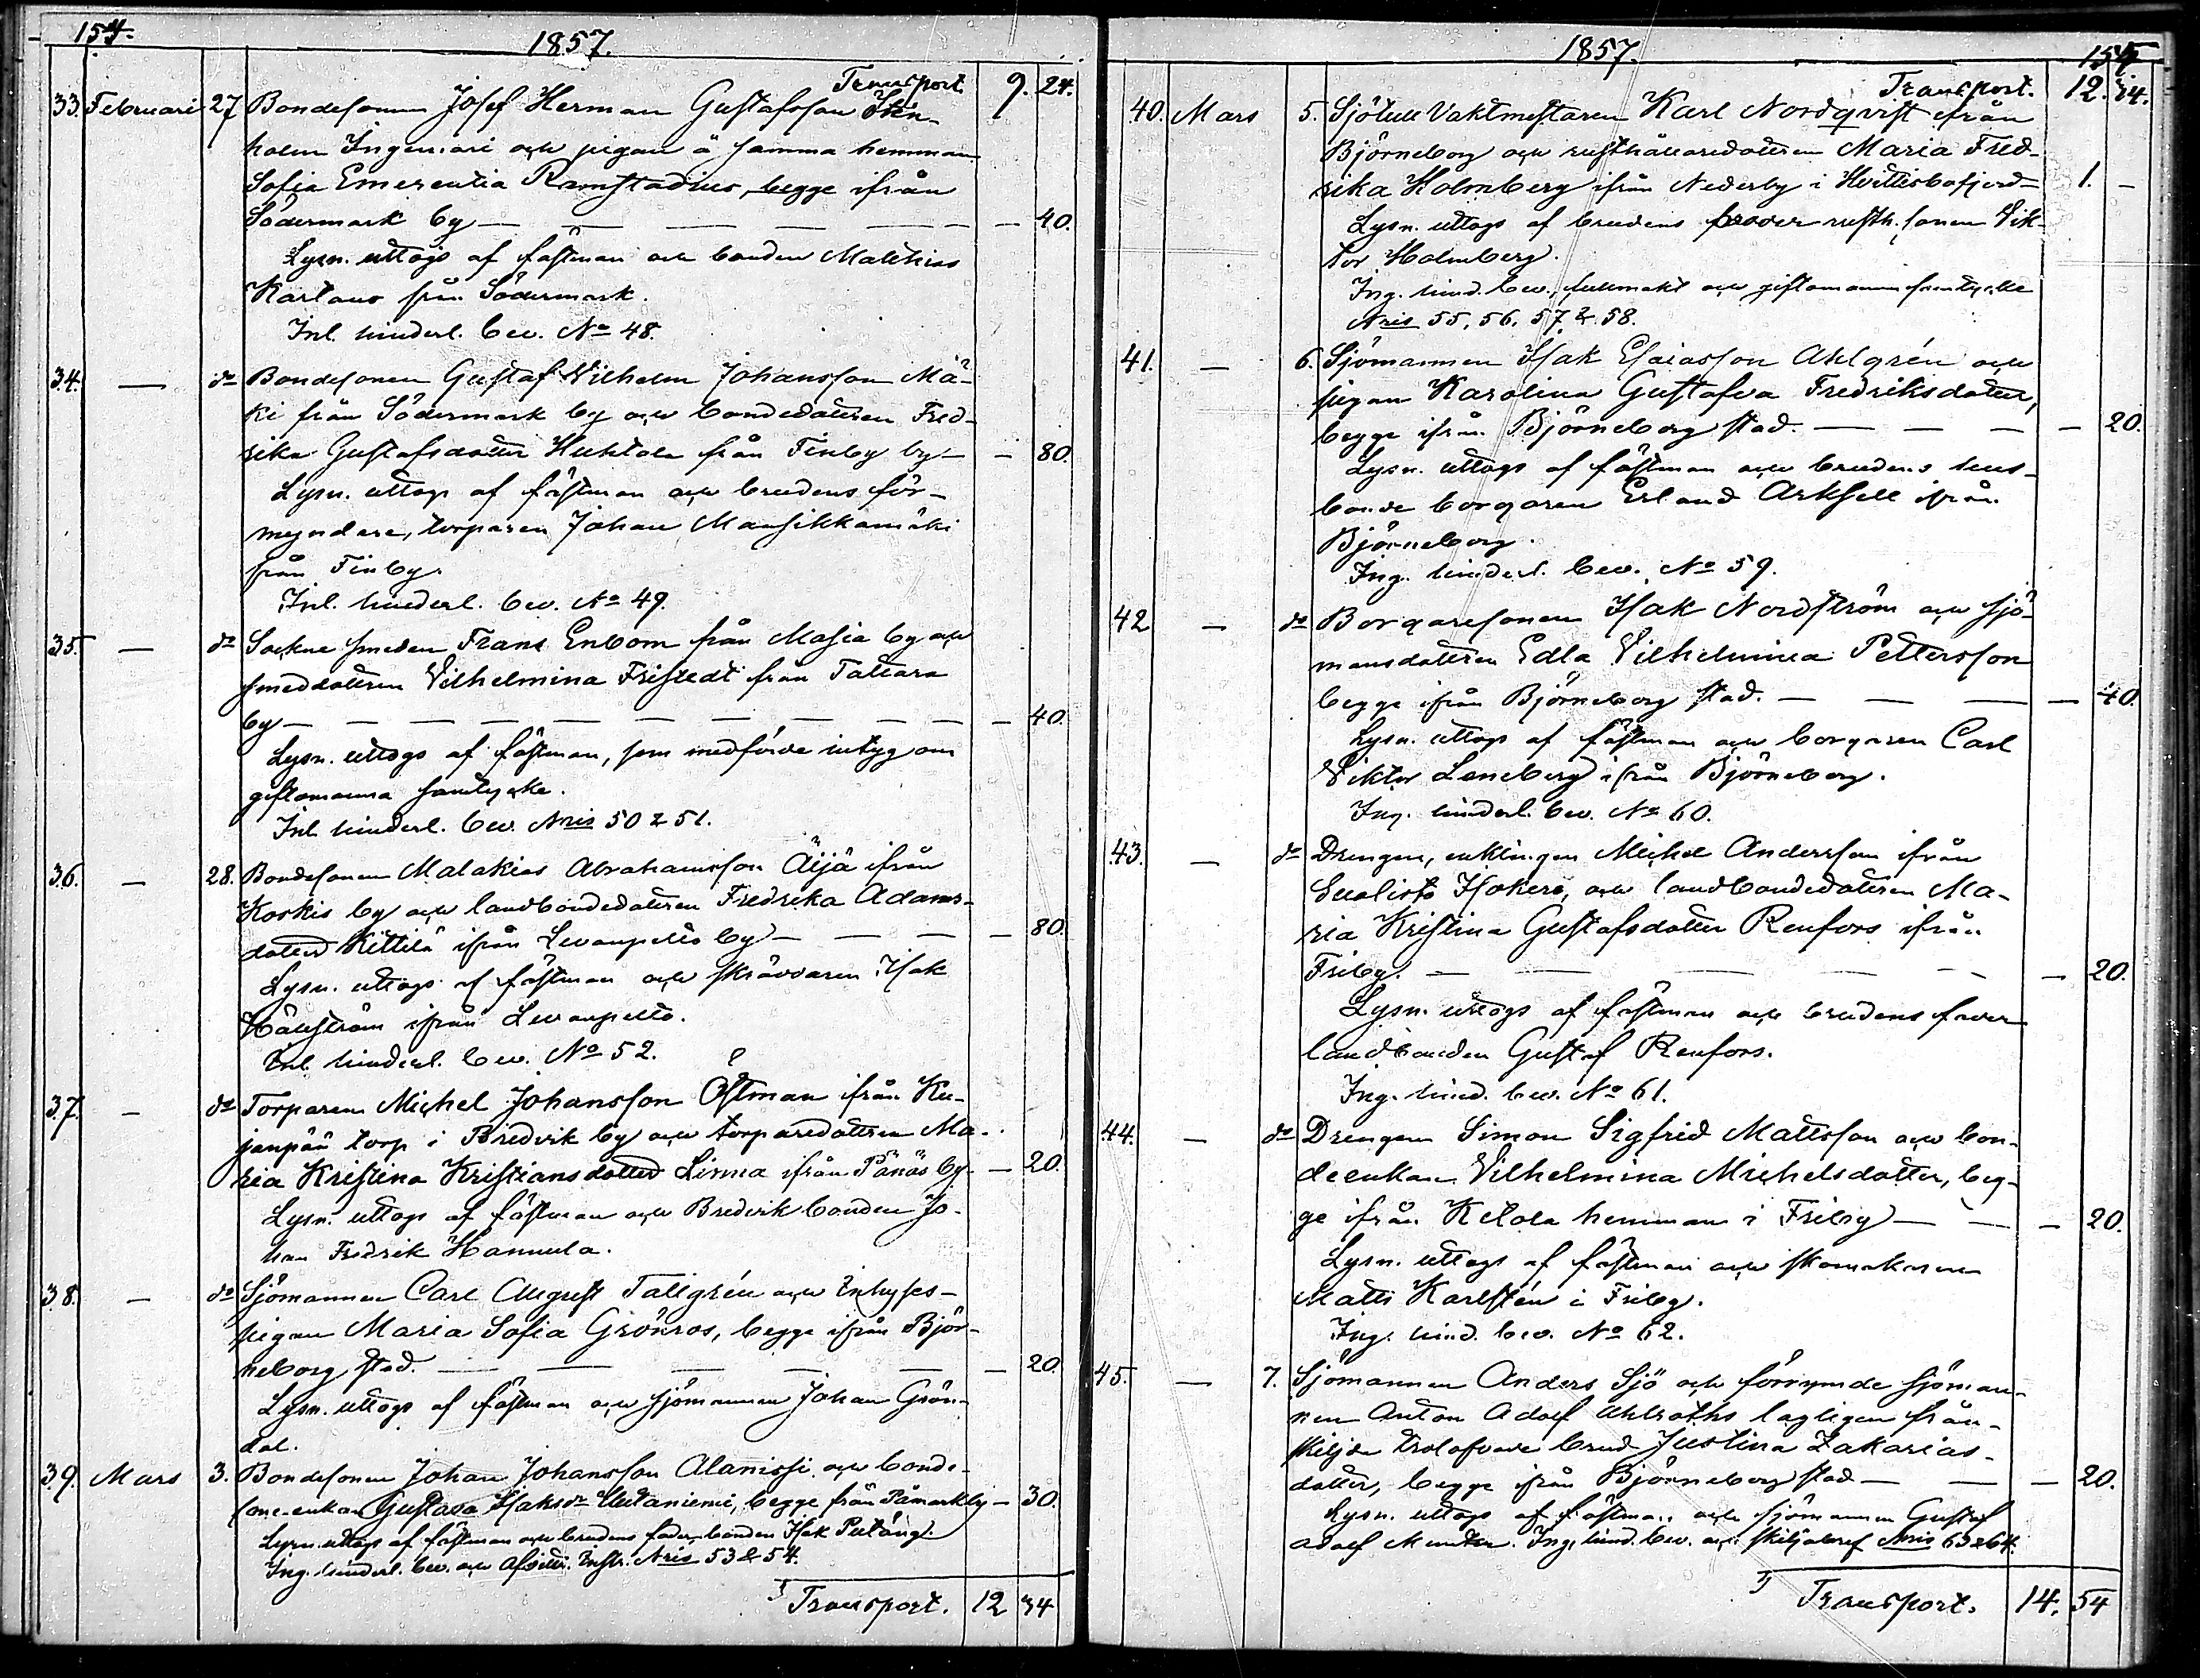 154.
1857.
Transport 9. 24.
33. Februari 27 Bondesonen Josef Herman Gustafsson
holm Ingemari och pigan å samma hemman
Sofia Emerentia Ramstadius, begge ifrån
Södermark by — — — — — — 40.
Lysn. uttogs af fästman och bonden Mathias
Kartano från Södermark.
Inl. hinderl. bev. No 48.
34. — do Bondesonen Gustaf Vilhelm Johansson Mä-
ki från Södermark by och bondedottren Fred-
rika Gustafsdotter Huhtala från Finby by — — 80.
Lysn. uttogs af fästman och brudens för-
myndare, torparen Johan Mansikkamäki
från Finby.
Inl. hinderl. bev. No 49.
35. — do Sockne smeden Frans Enbom från Masia by och
smeddottren Vilhelmina Fristedt från Tattara
by — — — — — — — — — 40.
Lysn. uttogs af fästman, som medförde intyg om
giftomanna samtycke.
Inl. hinderl. bev. Nris 50 & 51.
36. — 28. Bondesonen Malakias Abrahamsson Äijä ifrån
Koskis by och landbondedottren Fredrika Adams-
dotter Kittilä ifrån Levanpelto by — — — — 80.
Lysn. uttogs af fästman och skräddaren Isak
Hällström ifrån Levanpelto.
Inl. hinderl. bev. No 52.
37. — do Torparen Michel Johansson Östman ifrån Ku-
janpää torp i Bredvik by och torparedottren Ma-
ria Kristina Kristiansdotter Linna ifrån Pånäs by. — 20.
Lysn. uttogs af fästman och Bredvik bonden Jo-
han Fredrik Hannula.
38. — do Sjömannen Carl August Tallgrén och Inhyses-
pigan Maria Sofia Grönros, begge ifrån Björ-
neborg stad. — — — — — 20.
Lysn. uttogs af fästman och sjömannen Johan Grön-
dal.
39. Mars 3. Bondesonen Johan Johansson Alanissi och bonde-
sone-enkan Gustava Isaksdr Uutaniemi, begge från Påmark by — 30.
Lysn. uttogs af fästman och brudens fader bonden Isak Putäng.
Ing. hinderl. bev. och Afvittr. Instr. Nris 53 & 54.
Transport. 12 34
1857.
155
Transport. 12. 34.
40. Mars 5. Sjötull Vaktmestaren Karl Nordqvist ifrån
Björneborg och rusthållaredottren Maria Fred-
rika Holmberg ifrån Nederby i Hvittisbofjerd — 1. —
Lysn. uttogs af brudens broder rusth. sonen Vik-
tor Holmberg.
Ing. hind. bev., fullmakt och giftomanna samtycke
Nris 55, 56, 57 & 58.
41. — 6. Sjömannen Isak Esaiasson Ahlgrén och
pigan Karolina Gustafva Fredriksdotter,
begge ifrån Björneborg stad. — — — — 20.
Lysn. uttogs af fästman och brudens hus-
bonde borgaren Erland Arksell ifrån
Björneborg.
Ing. hinderl. bev. No 59.
42 — do Borgaresonen Isak Nordström och sjö-
mansdottren Edla Vilhelmina Pettersson
begge ifrån Björneborg stad. — — — — 40.
Lysn. uttogs af fästman och borgaren Carl
Viktor Leneberg ifrån Björneborg.
Ing. hinderl. bev. No 60.
43. — do Drengen, enklingen Michel Andersson ifrån
Isokero, och landbondedottren Ma-
ria Kristina Gustafsdotter Renfors ifrån
Friby. — — — — — 20.
Lysn. uttogs af fästman och brudens fader
landbonden Gustaf Renfors.
Ing. hind. bev. No 61.
44. — do Drengen Simon Sigfrid Mattsson och bon-
deenkan Vilhelmina Michelsdotter, beg-
ge ifrån Ketola hemman i Friby — — — 20.
Lysn. uttogs af fästman och skomakaren
Matts Karlstén i Friby.
Ing. hind. bev. No 62.
45. — 7. Sjömannen Anders Sjö och förrymde sjöman-
nen Anton Adolf Ahlroths lagligen från-
skiljda trolofvade brud Justina Zakarias-
dotter, begge ifrån Björneborg stad — — — 20.
Lysn. uttogs af fästman och sjömannen Gustaf
Adolf Munter. Ing. hind. bev. och skiljobref Nris 63 & 64.
Transport. 14. 54